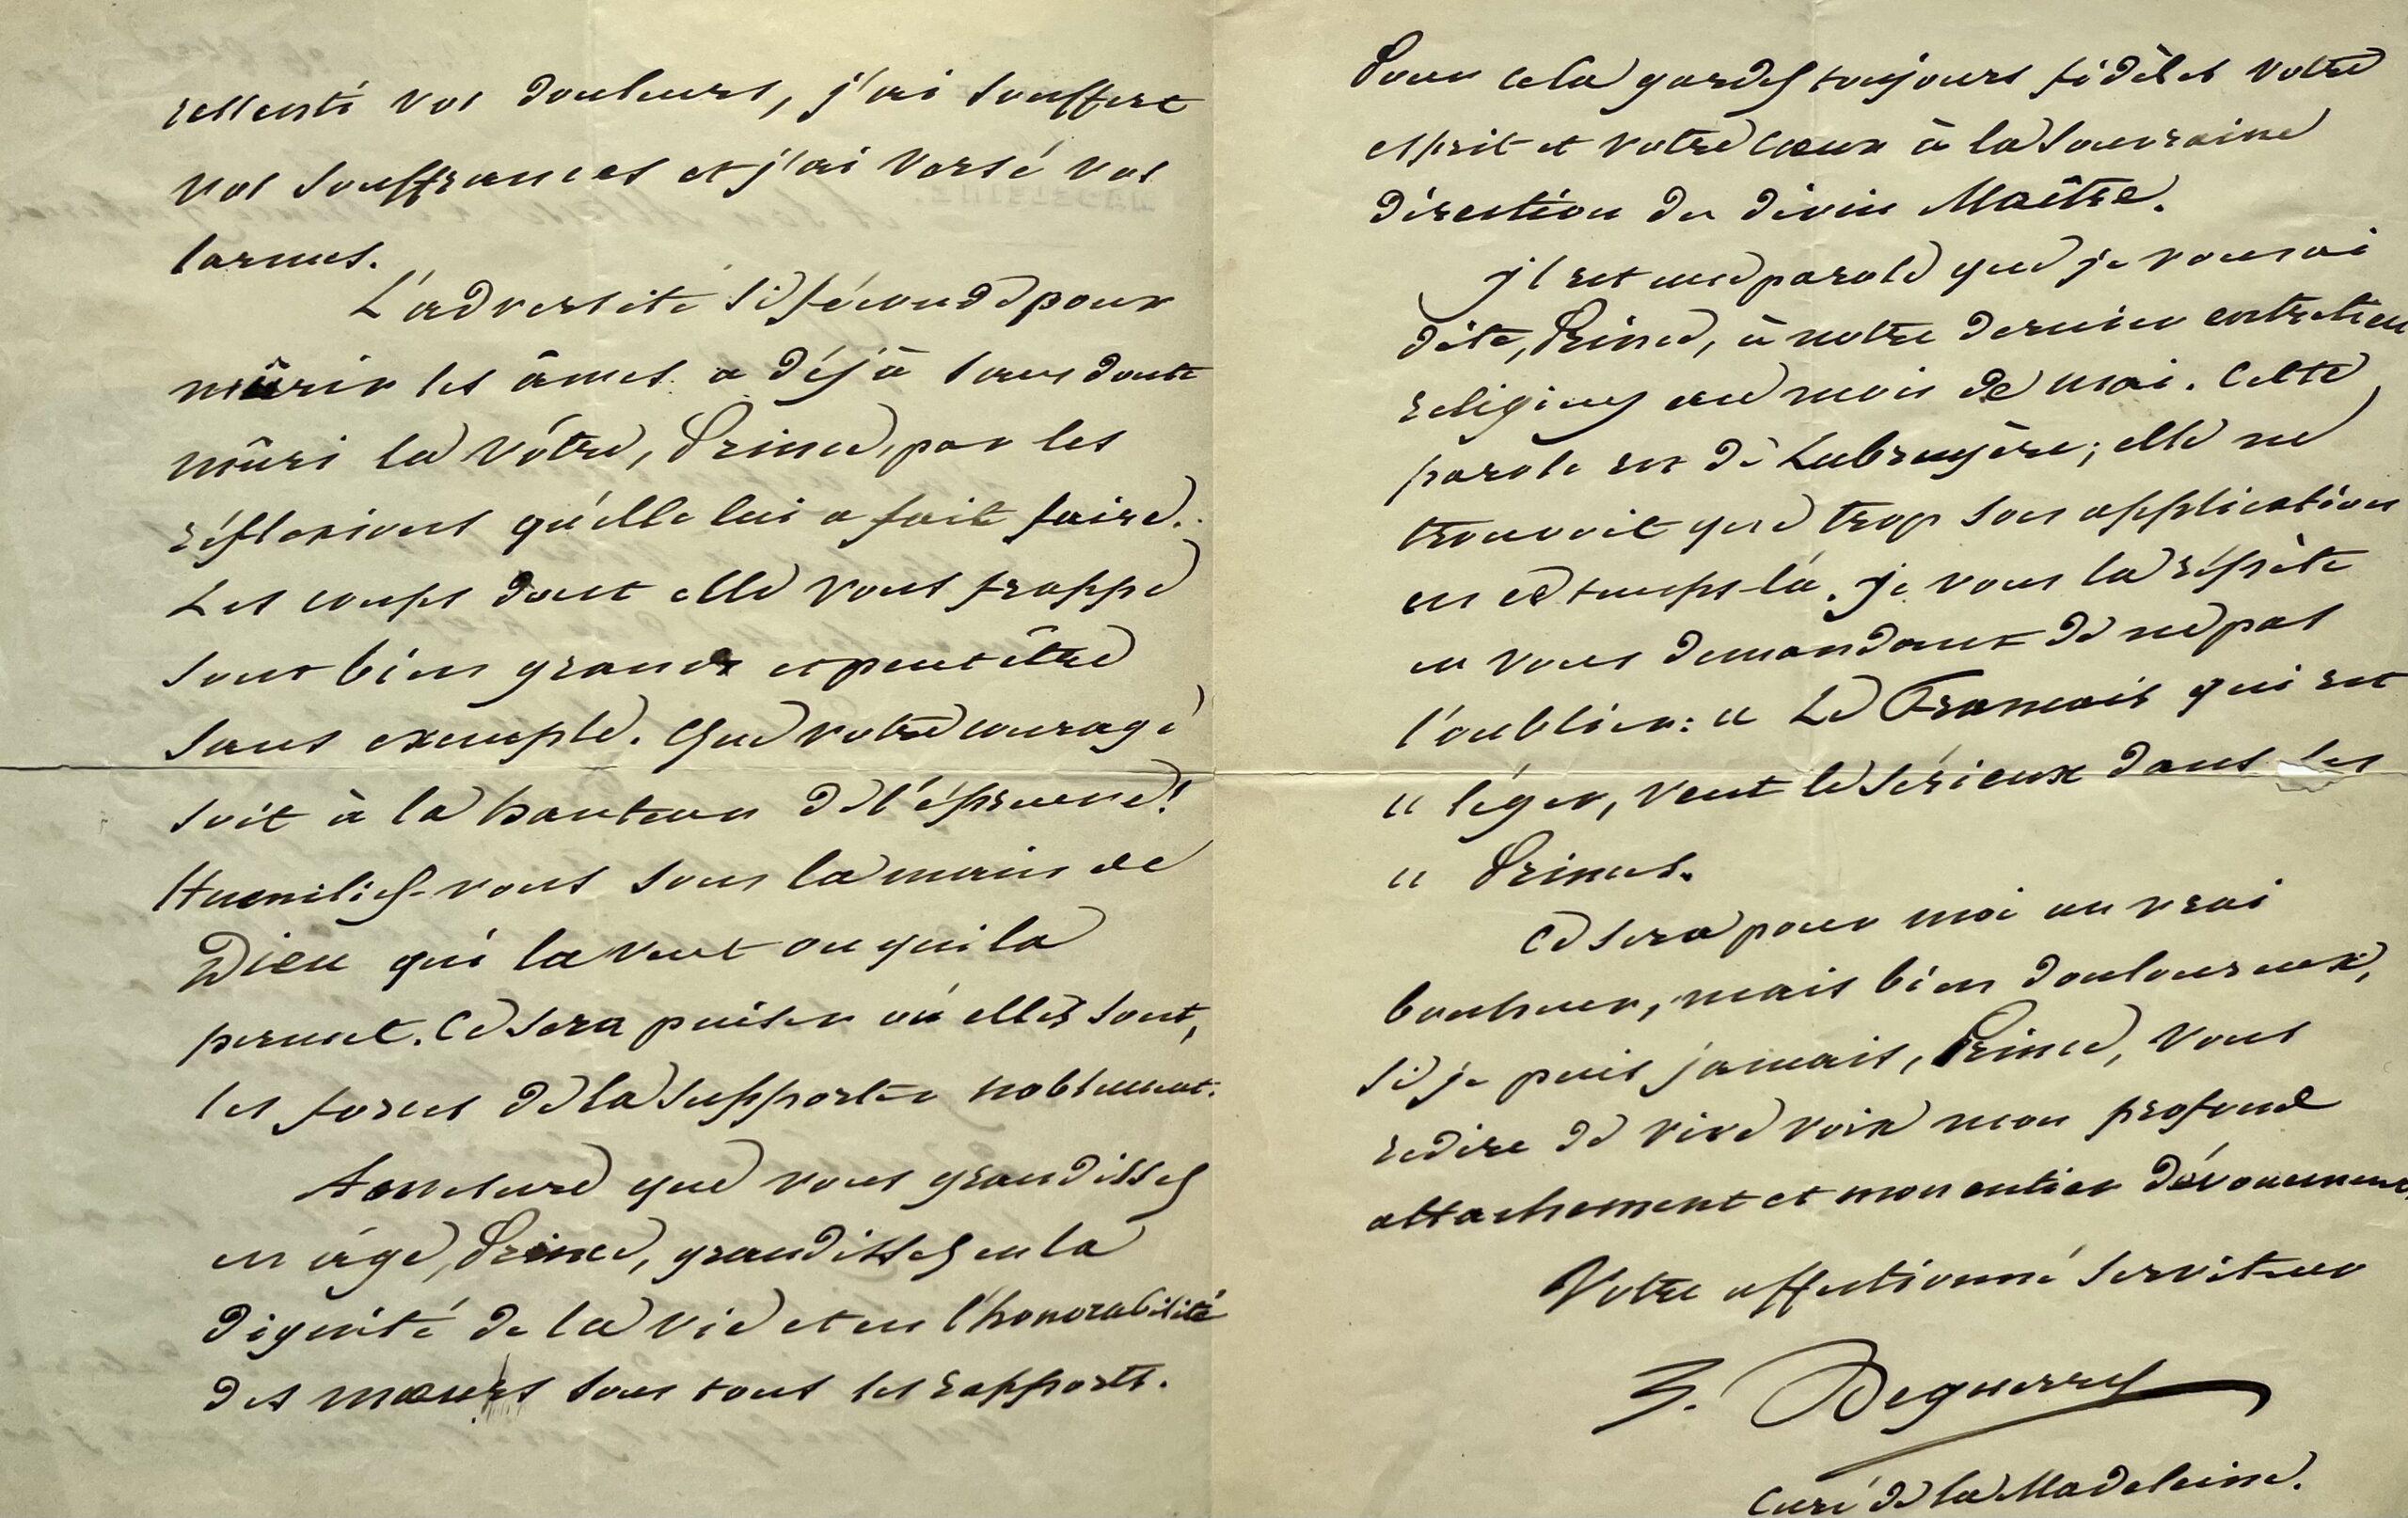 ressenti vos douleurs, j'ai souffert
vos souffrances et j'ai versé vos
larmes.
L'adversité si féconde pour
mûrir les âmes a déjà sans doute
mûri la vôtre, Prince, par les
réflexions qu'elle lui a fait faire.
Les coups dont elle vous frappe
sont bien grands et peut être
sans exemple. Que votre courage
soit à la hauteur de l'épreuve!
Humiliez-vous sous la main de
Dieu qui la veut ou qui la
permet. Ce sera puiser où elles sont,
les forces de la supporter noblement.
A mesure que vous grandissez
en âge, Prince, grandissez en la
dignité de la vie et en l'honorabilité
des mœurs sous tous les rapports.
Pour cela gardez toujours fidèles votre
esprit et votre cœur à la souveraine
direction du divin Maître.
Il est une parole que je vous ai
dite, Prince, à notre dernier entretien
religieux au mois de mai. Cette
parole est de Labruyère; elle ne
trouvait que trop son application
en ce temps-là. Je vous la répète
en vous demandant de ne pas
l'oublier: " Le Français qui est
" léger, veut le sérieux dans les
" Princes.
Ce sera pour moi un vrai
bonheur, mais bien douloureux,
si je puis jamais, Prince, vous
redire de vive voix mon profond
attachement et mon entier dévouement
Votre affectionné serviteur
Deguerry
Curé de la Madeleine.